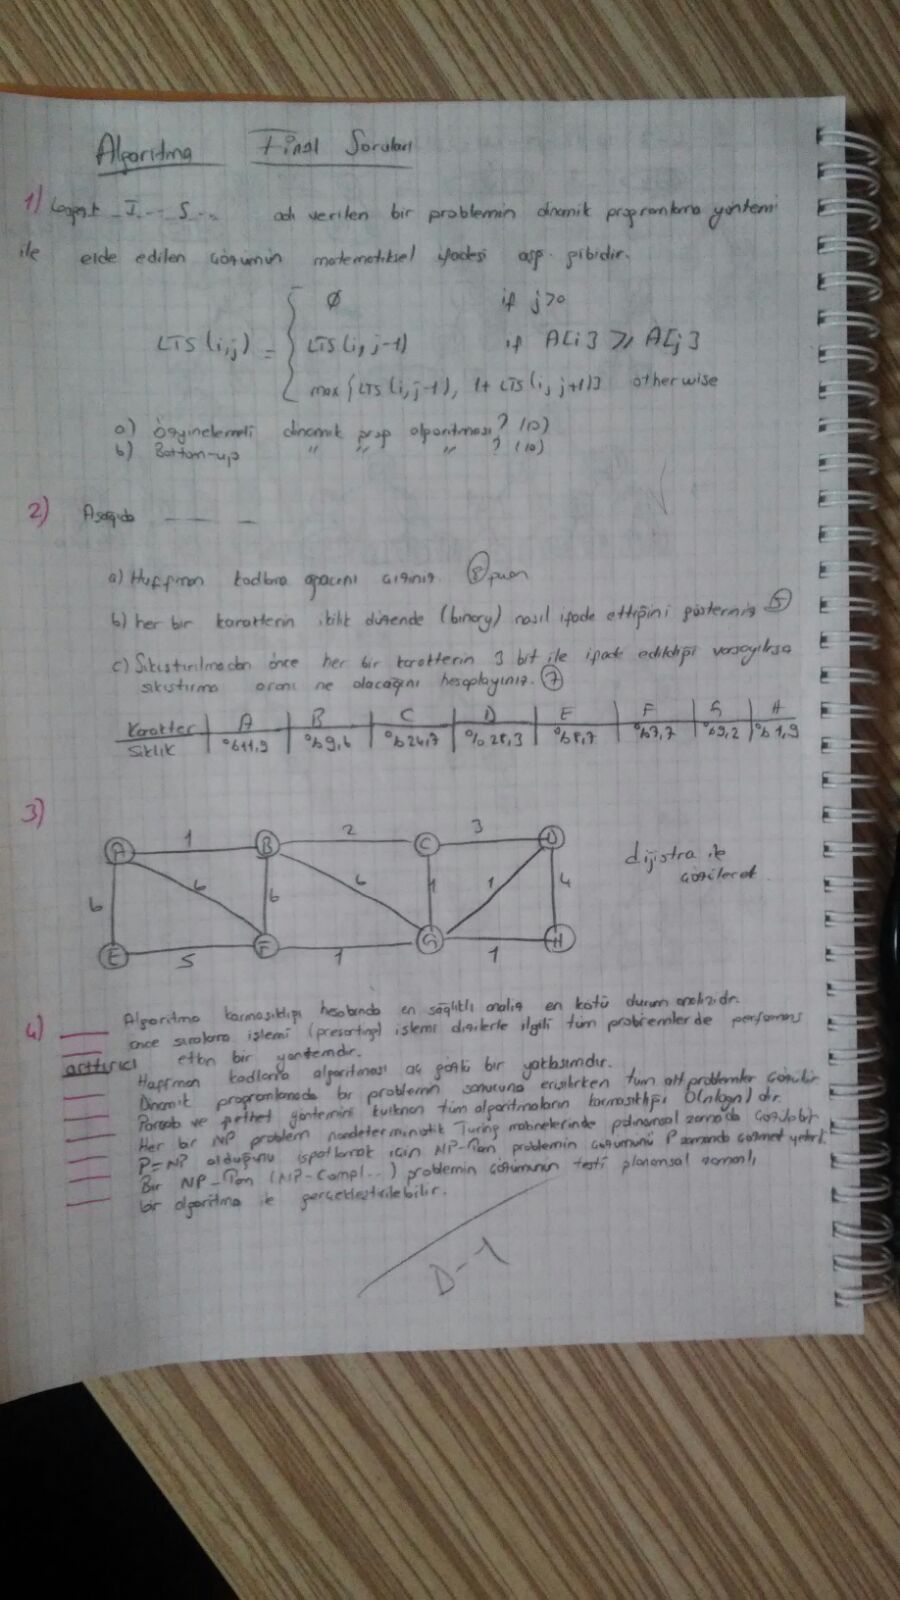 Algoritma Final Soruları
1) Longest _I_ _ _ S _ _ adı verilen bir problemin dinamik programlama yöntemi
ile elde edilen çözümün matematiksel ifadesi aşş. gibidir.
LIS(i,j) = { ∅ if j>0
LIS(i,j-1) if A[i] ≥ A[j]
max{LIS(i,j-1), 1+LIS(i,j+1)} otherwise
a) Özyinelemeli dinamik prog algoritması? (10)
b) Bottom-up " " " ? (10)
2) Aşağıda — — —
a) Huffman kodlama ağacını çiziniz. (8) puan
b) her bir karakterin ikilik düzende (binary) nasıl ifade ettiğini gösteriniz (5)
c) Sıkıştırılmadan önce her bir karakterin 3 bit ile ifade edildiği varsayılırsa
sıkıştırma oranı ne olacağını hesaplayınız. (7)
Karakter A B C D E F G H
Sıklık %11,9 %9,6 %24,7 %28,3 %8,7 %7,7 %9,2 %1,9
3)
A 1 B 2 C 3 D
dijistra ile
çözülecek.
6 6 6 6 1 1 4
E 5 F 1 G 1 H
4) ___ Algoritma karmaşıklığı hesabında en sağlıklı analiz en kötü durum analizidir.
___ önce sıralama işlemi (presorting) işlemi dizilerle ilgili tüm problemlerde performans
arttırıcı etkin bir yöntemdir.
___ Haffman kodlama algoritması aç gözlü bir yaklaşımdır.
___ Dinamik programlamada bir problemin sonucuna erişilirken tüm alt problemler çözülür
___ Parçala ve fethet yöntemini kullanan tüm algoritmaların karmaşıklığı O(nlogn) dir.
___ Her bir NP problem nondeterminatik Turing makinelerinde polinomsal zamanda çözülebilir
___ P=NP olduğunu ispatlamak için NP-Tam problemin çözümünü P zamanda çözmek yeterli
___ Bir NP-Tam (NP-Compl...) problemin çözümünün testi planomsal zamanlı
bir algoritma ile gerçekleştirilebilir.
D-1